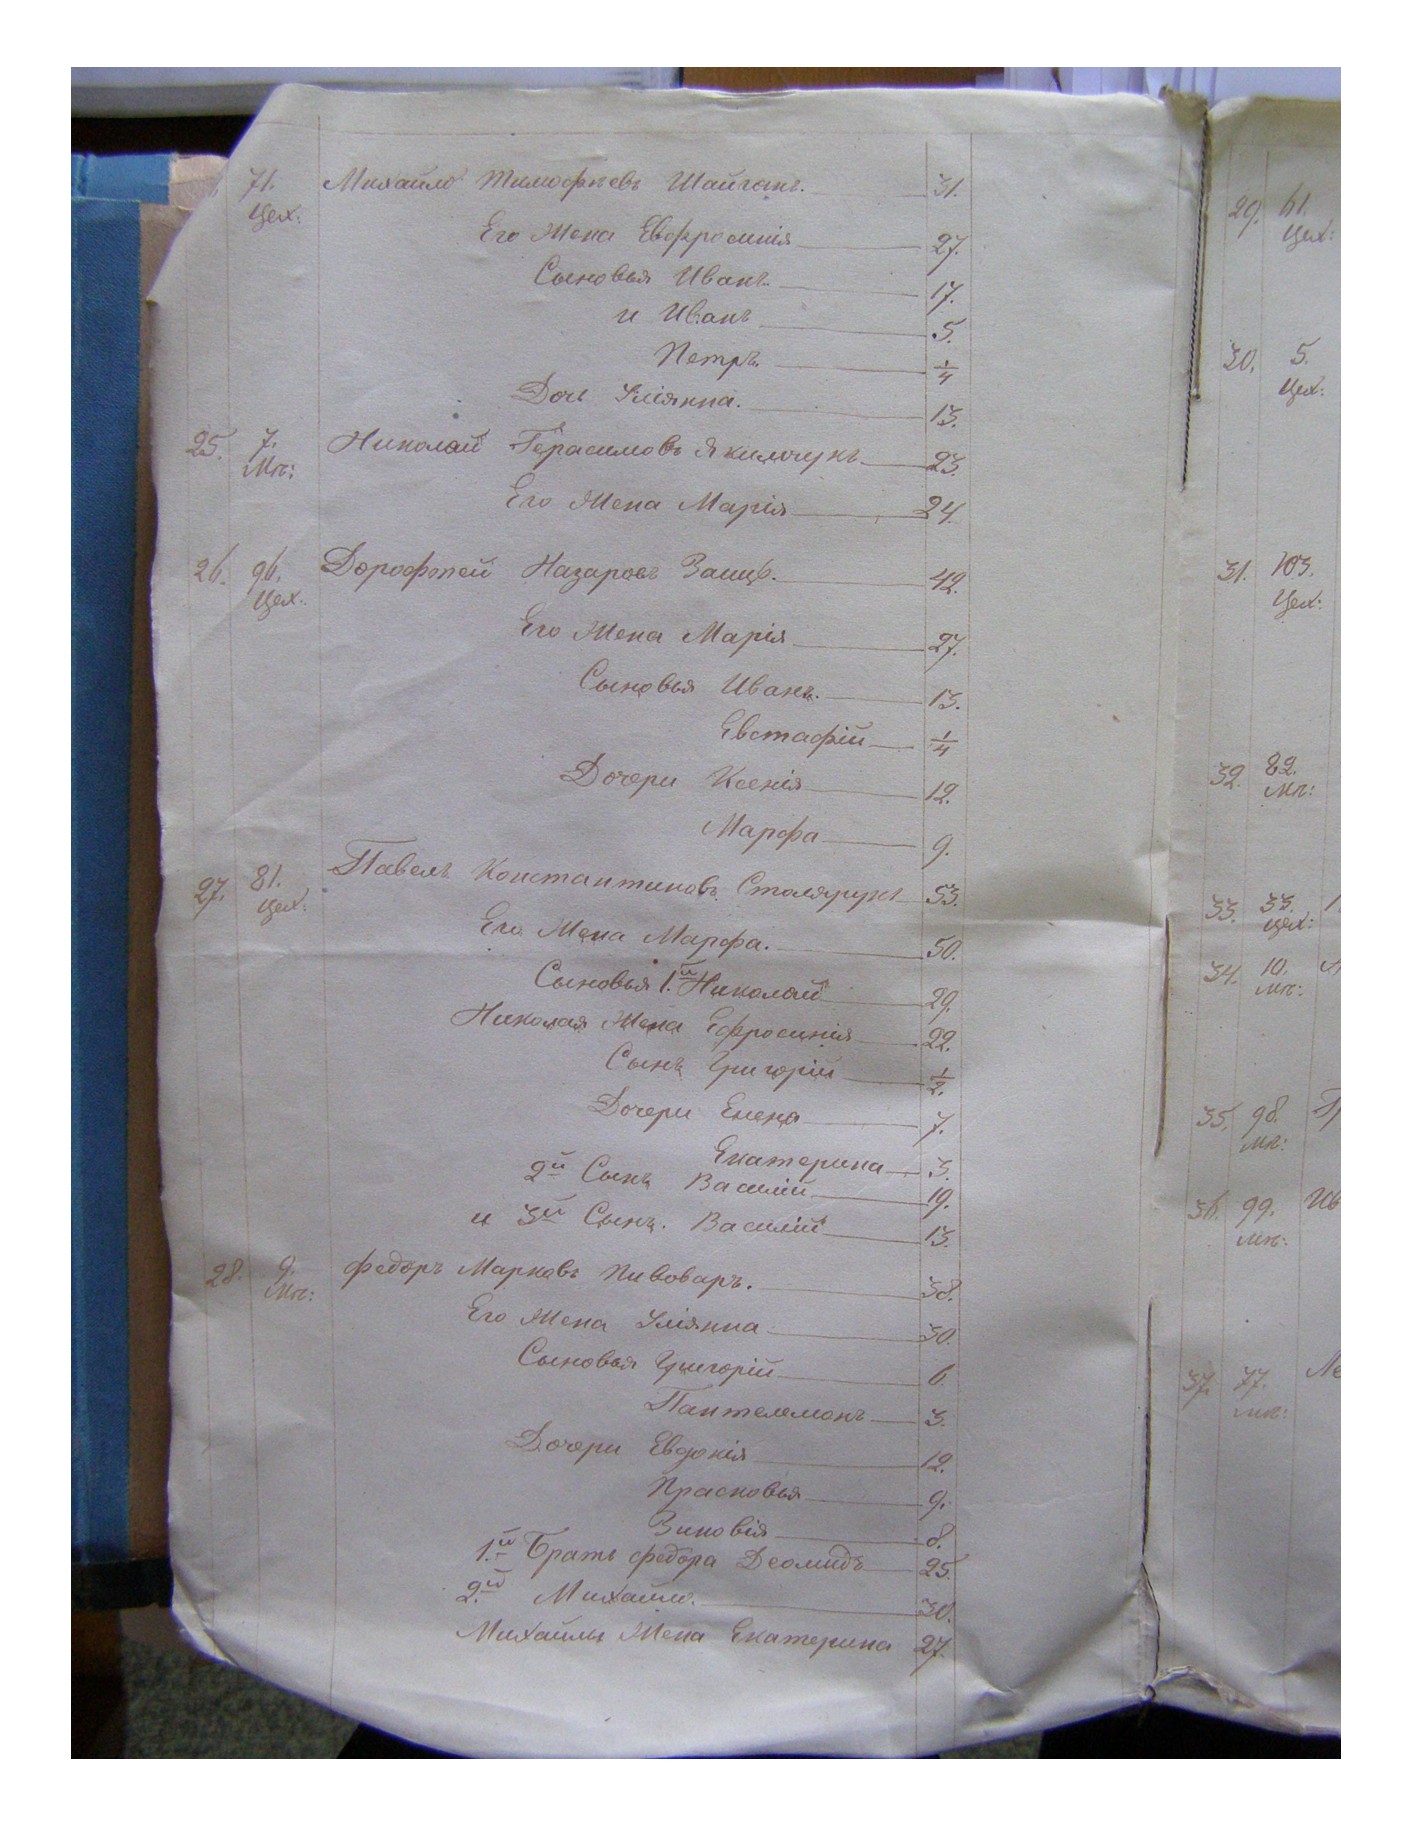 71. Михайло Тимофѣевъ Шайганъ. 31.
Цех:
Его Жена Евфросинія 27.
Сыновья Иванъ. 17.
и Иванъ 5.
Петръ. 1/4
Дочь Уліянна. 13.
25. 7. Николай Герасимовъ Якимчукъ 23.
Мѣ:
Его Жена Марія 24.
26. 96. Дорофтей Назаровъ Заицъ. 42.
Цех.
Его Жена Марія 27.
Сыновья Иванъ. 13.
Евстафій 1/4
Дочери Ксенія 12.
Марфа 9.
27. 81. Павелъ Константиновъ Столярукъ 53.
Цех:
Его Жена Марфа. 50.
Сыновья 1.й Николай 29.
Николая Жена Ефросинія 22.
Сынъ Григорій 1/2.
Дочери Елена 7.
Екатерина 3.
2й Сынъ Василій 19.
и 3й Сынъ. Василій 13.
28. 9. Федоръ Марковъ Пивоваръ. 38.
Мѣ:
Его Жена Уліянна 30.
Сыновья Григорій 6
Пантелемонъ 3.
Дочери Евдокія 12.
Прасковья 9.
Зиновія 8.
1.й Братъ Федора Деомидъ 25.
2.й Михайло. 30.
Михайлы Жена Екатерина 27.
29. 61.
Цех:
30. 5.
Цех:
31. 103.
Цех:
32. 82.
Мѣ:
33. 33.
Цех:
34. 10.
Мѣ:
35. 98.
Мѣ:
36. 99. Ив
Мѣ:
37. 77.
Мѣ: